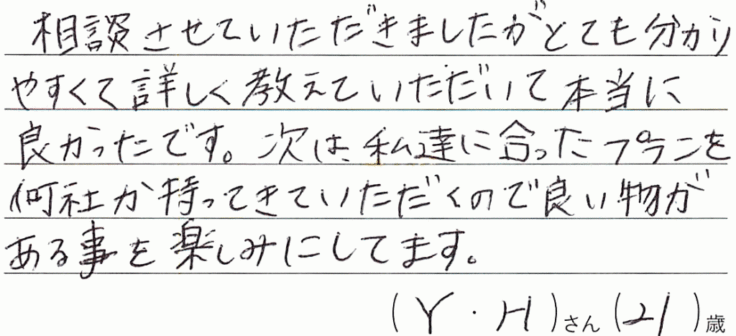 相談させていただきましたがとても分かり
やすくて詳しく教えていただいて本当に
良かったです。次は、私達に合ったプランを
何社か持ってきていただくので良い物が
ある事を楽しみにしてます。
(Y・H)さん(21)歳